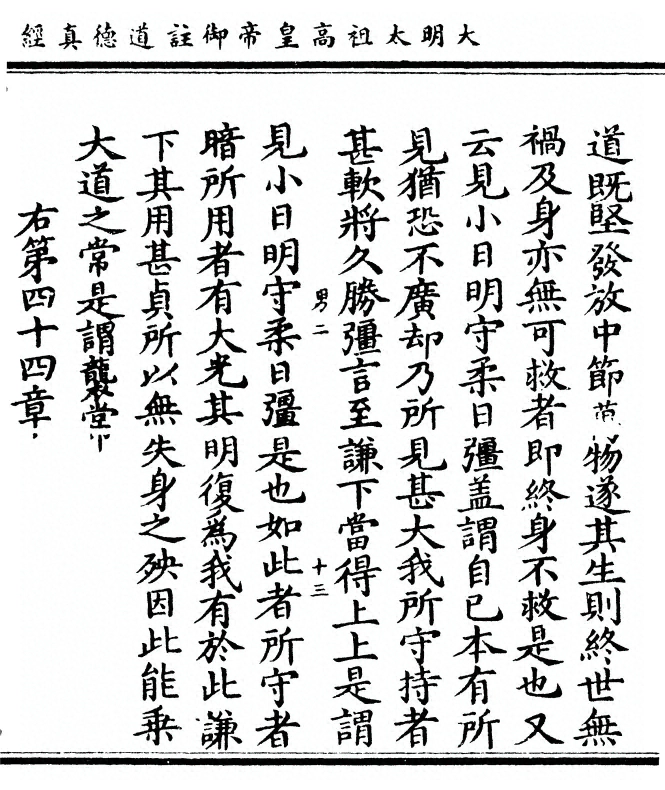 大明太祖高皇帝御註道德真經
道既堅發放中節萬物遂其生則終世無
禍及身亦無可救者即終身不救是也又
云見小日明守柔日彊盖謂自已本有所
見猶恐不廣却乃所見甚大我所守持者
甚軟將久勝彊言至謙下當得上上是謂
男二 十三
見小日明守柔日彊是也如此者所守者
暗所用者有大光其明復爲我有於此謙
下其用甚貞所以無失身之殃因此能乗
大道之常是謂襲常
右第四十四章